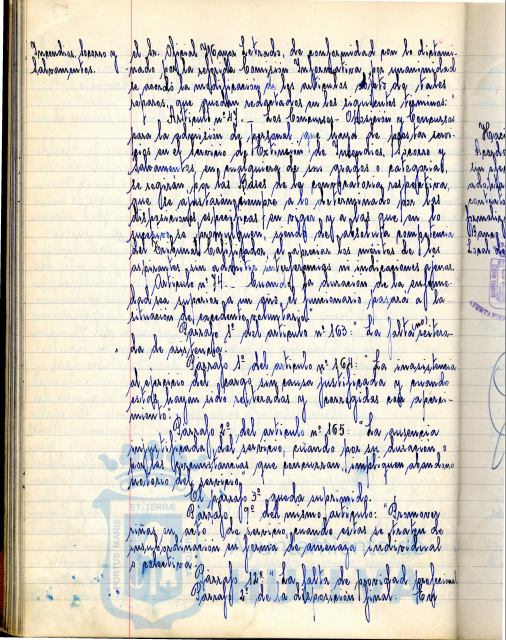 Incendios, Socorro y
Salvamentos.
el Sr. Oficial Mayor Letrado, de conformidad con lo dictami-
nado por la referida Comisión Informativa, por unanimidad
se acordó la modificación de los artículos objeto de tales
reparos, que quedan redactados en los siguientes términos:
"Artículo nº 47.- Los Concursos-Oposición y Concursos
para la admisión de Personal que haya de prestar servi-
cios en el Servicio de Extinción de Incendios, Socorro y
Salvamentos, en cualquiera de sus grados o categorías,
se regirán por las Bases de la convocatoria respectiva,
que se ajustarán siempre a lo determinado por las
disposiciones específicas en vigor y a las que en lo
sucesivo se promulguen, siendo de absoluta competencia
del Tribunal Calificador, el apreciar los méritos de los
aspirantes sin admitir
Artículo nº 74.- Cuando la duración de la enferme-
dad sea superior a un año, el funcionario pasará a la
situación de excedente voluntario."
Párrafo 1º del artículo nº 163: "La falta no reitera-
da de asistencia.
Párrafo 1º del artículo nº 164: "La inasistencia
al ejercicio del cargo sin causa justificada y cuando
estas hayan sido reiteradas y corregidas con aperci-
bimiento."
Párrafo 2º del artículo nº 165: "La ausencia
injustificada del servicio, cuando por su duración o
por las circunstancias que concurran impliquen abandono
notorio del servicio."
El párrafo 3º queda suprimido.
Párrafo 9º del mismo artículo: "Promover
riñas en acto de servicio, cuando estas se traten de
insubordinación en forma de amenaza individual
o colectiva.
Párrafo 12º "La falta de probidad profesional
Párrafo 2º de la disposición final: En
PORTUS MARIS
ET TERRÆ